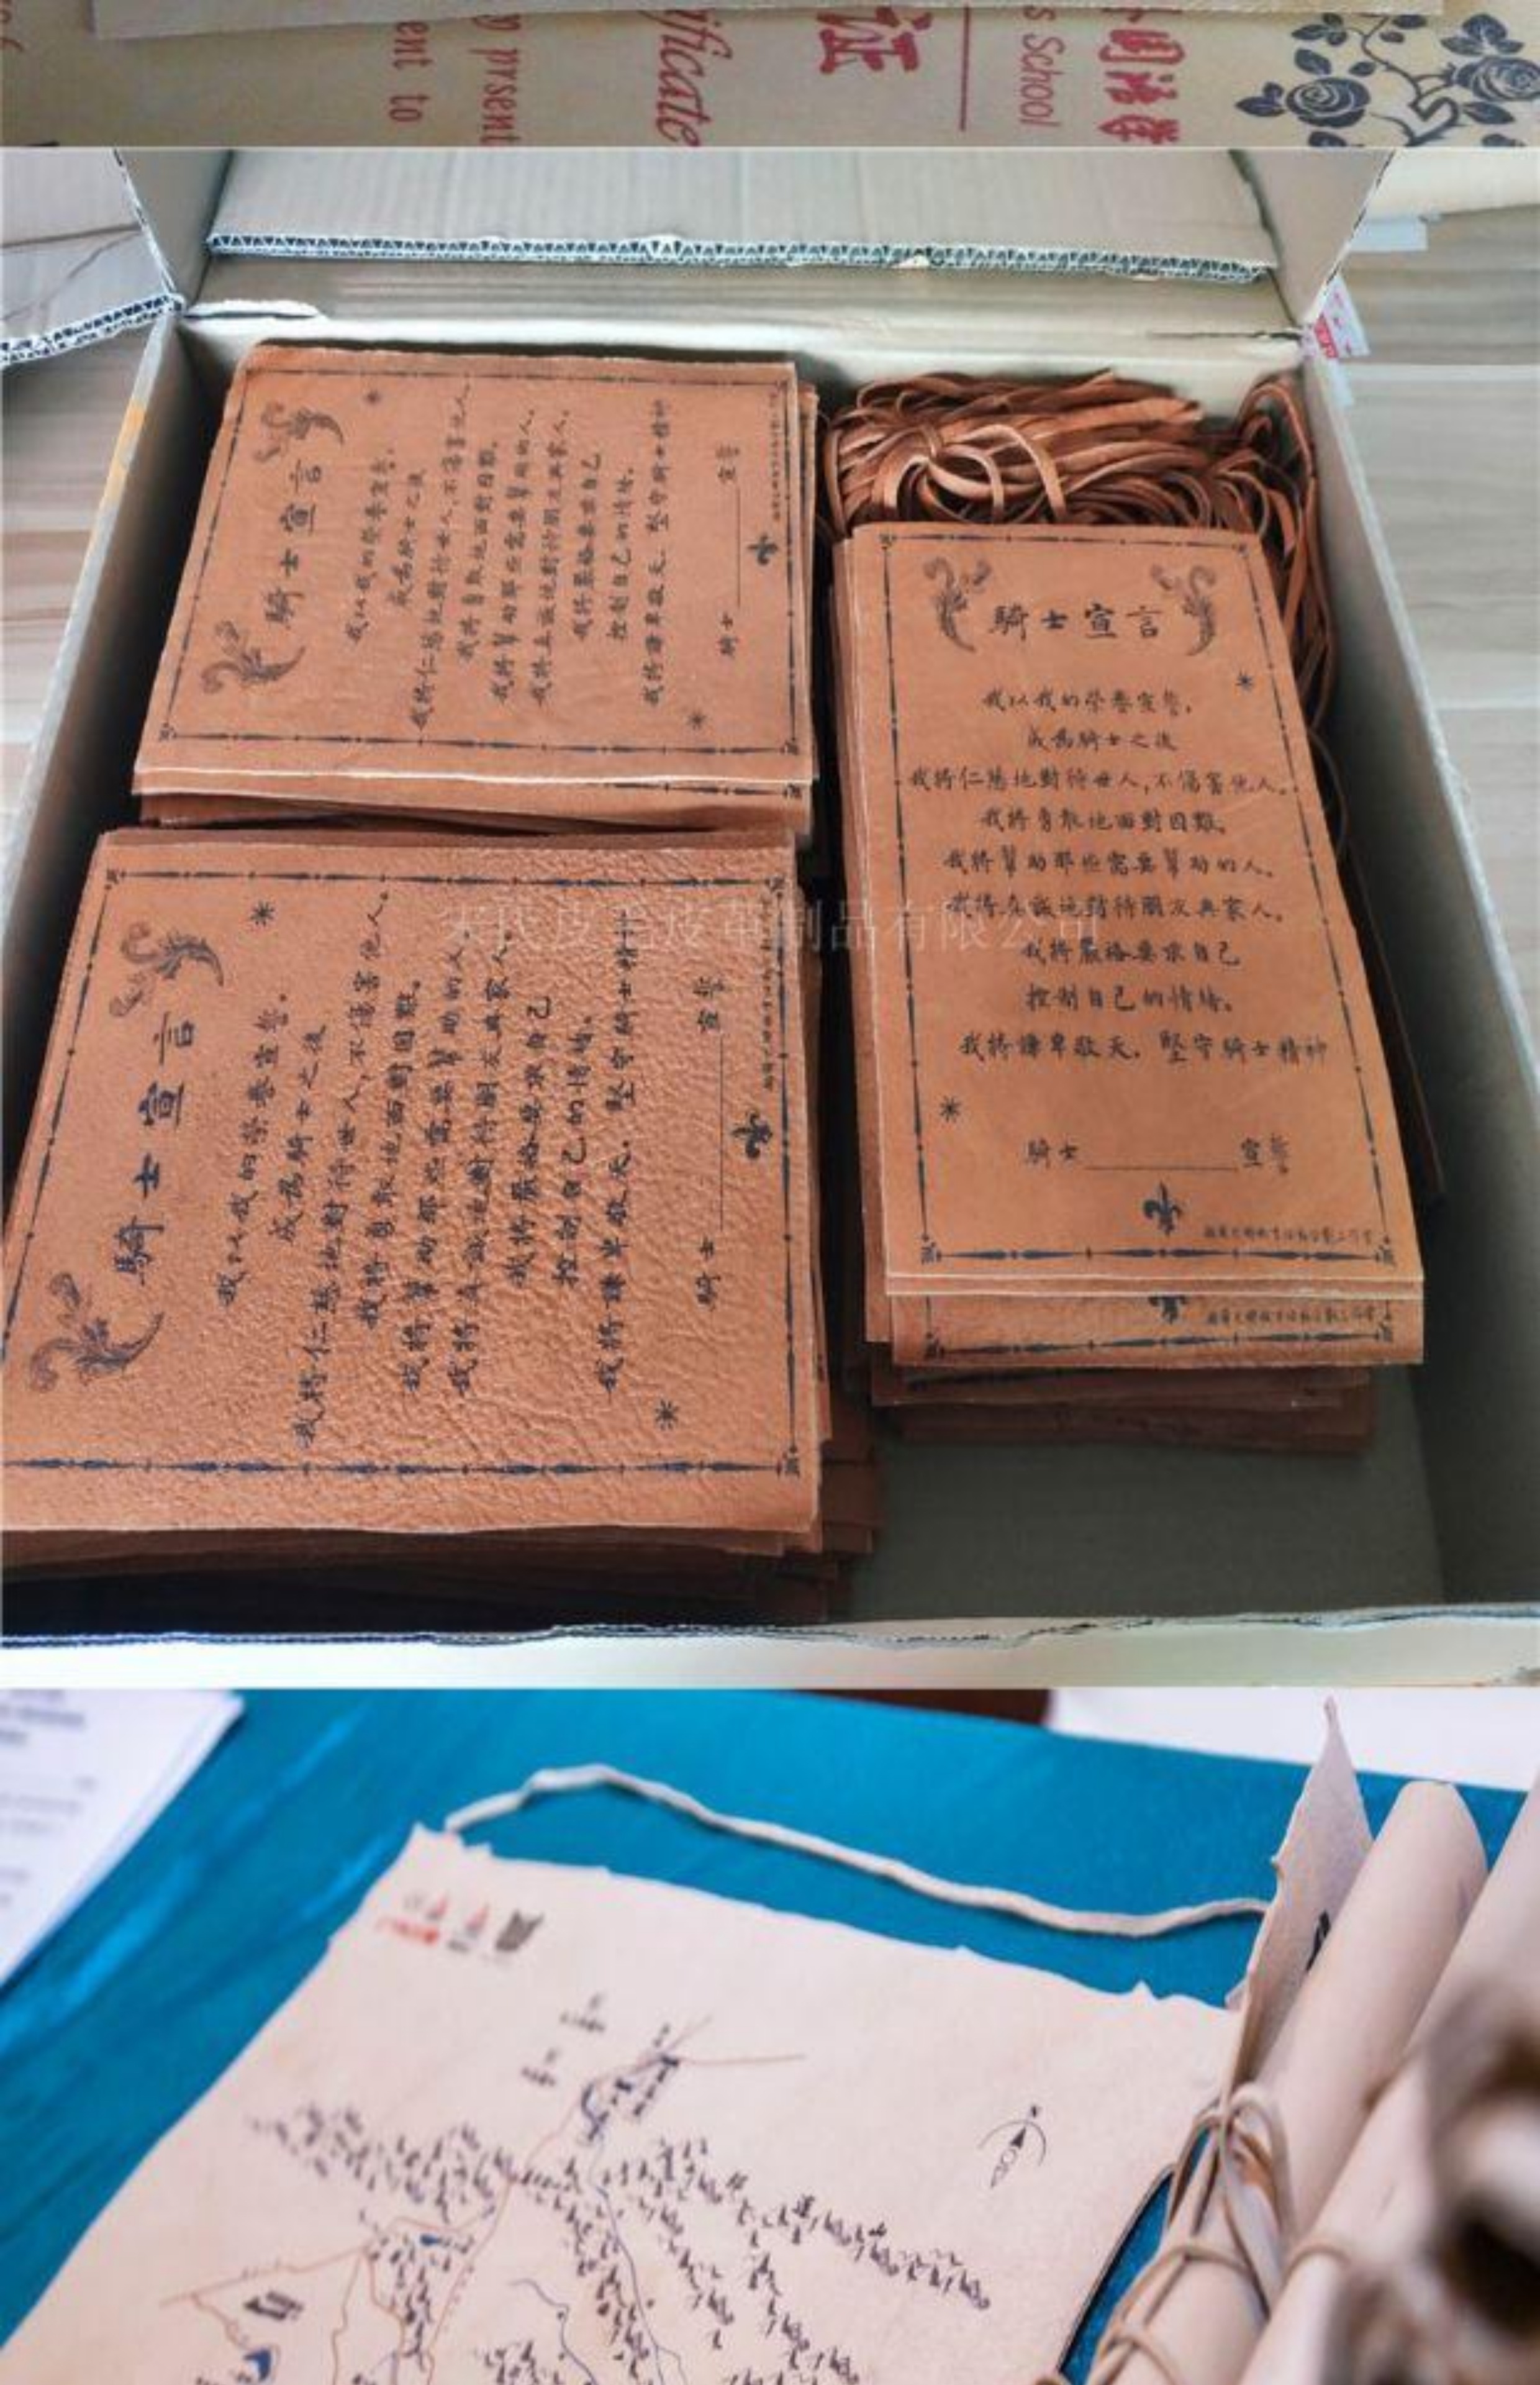 y present
ent to
ificate
证
s School
骑士宣言
我以我的榮譽宣誓。
成為騎士之後
我將仁慈地對待世人,不傷害他人。
我將勇敢地面對困難。
我將幫助那些需要幫助的人。
我將真誠地對待朋友與家人。
我將嚴格要求自己
控制自己的情緒。
我將謙卑敬天。堅守騎士精神
騎士 宣誓
騎士宣言
我以我的榮譽宣誓,
成為騎士之後
我將仁慈地對待世人,不傷害他人。
我將勇敢地面對困難。
我將幫助那些需要幫助的人。
我將真誠地對待朋友與家人。
我將嚴格要求自己
控制自己的情緒。
我將謙卑敬天。堅守騎士精神
騎士 宣誓
騎士宣言
我以我的榮譽宣誓。
成為騎士之後
我將仁慈地對待世人,不傷害他人。
我將勇敢地面對困難。
我將幫助那些需要幫助的人。
我將真誠地對待朋友與家人。
我將嚴格要求自己
控制自己的情緒。
我將謙卑敬天。堅守騎士精神
騎士 宣誓
皮毛皮革制品有限公司